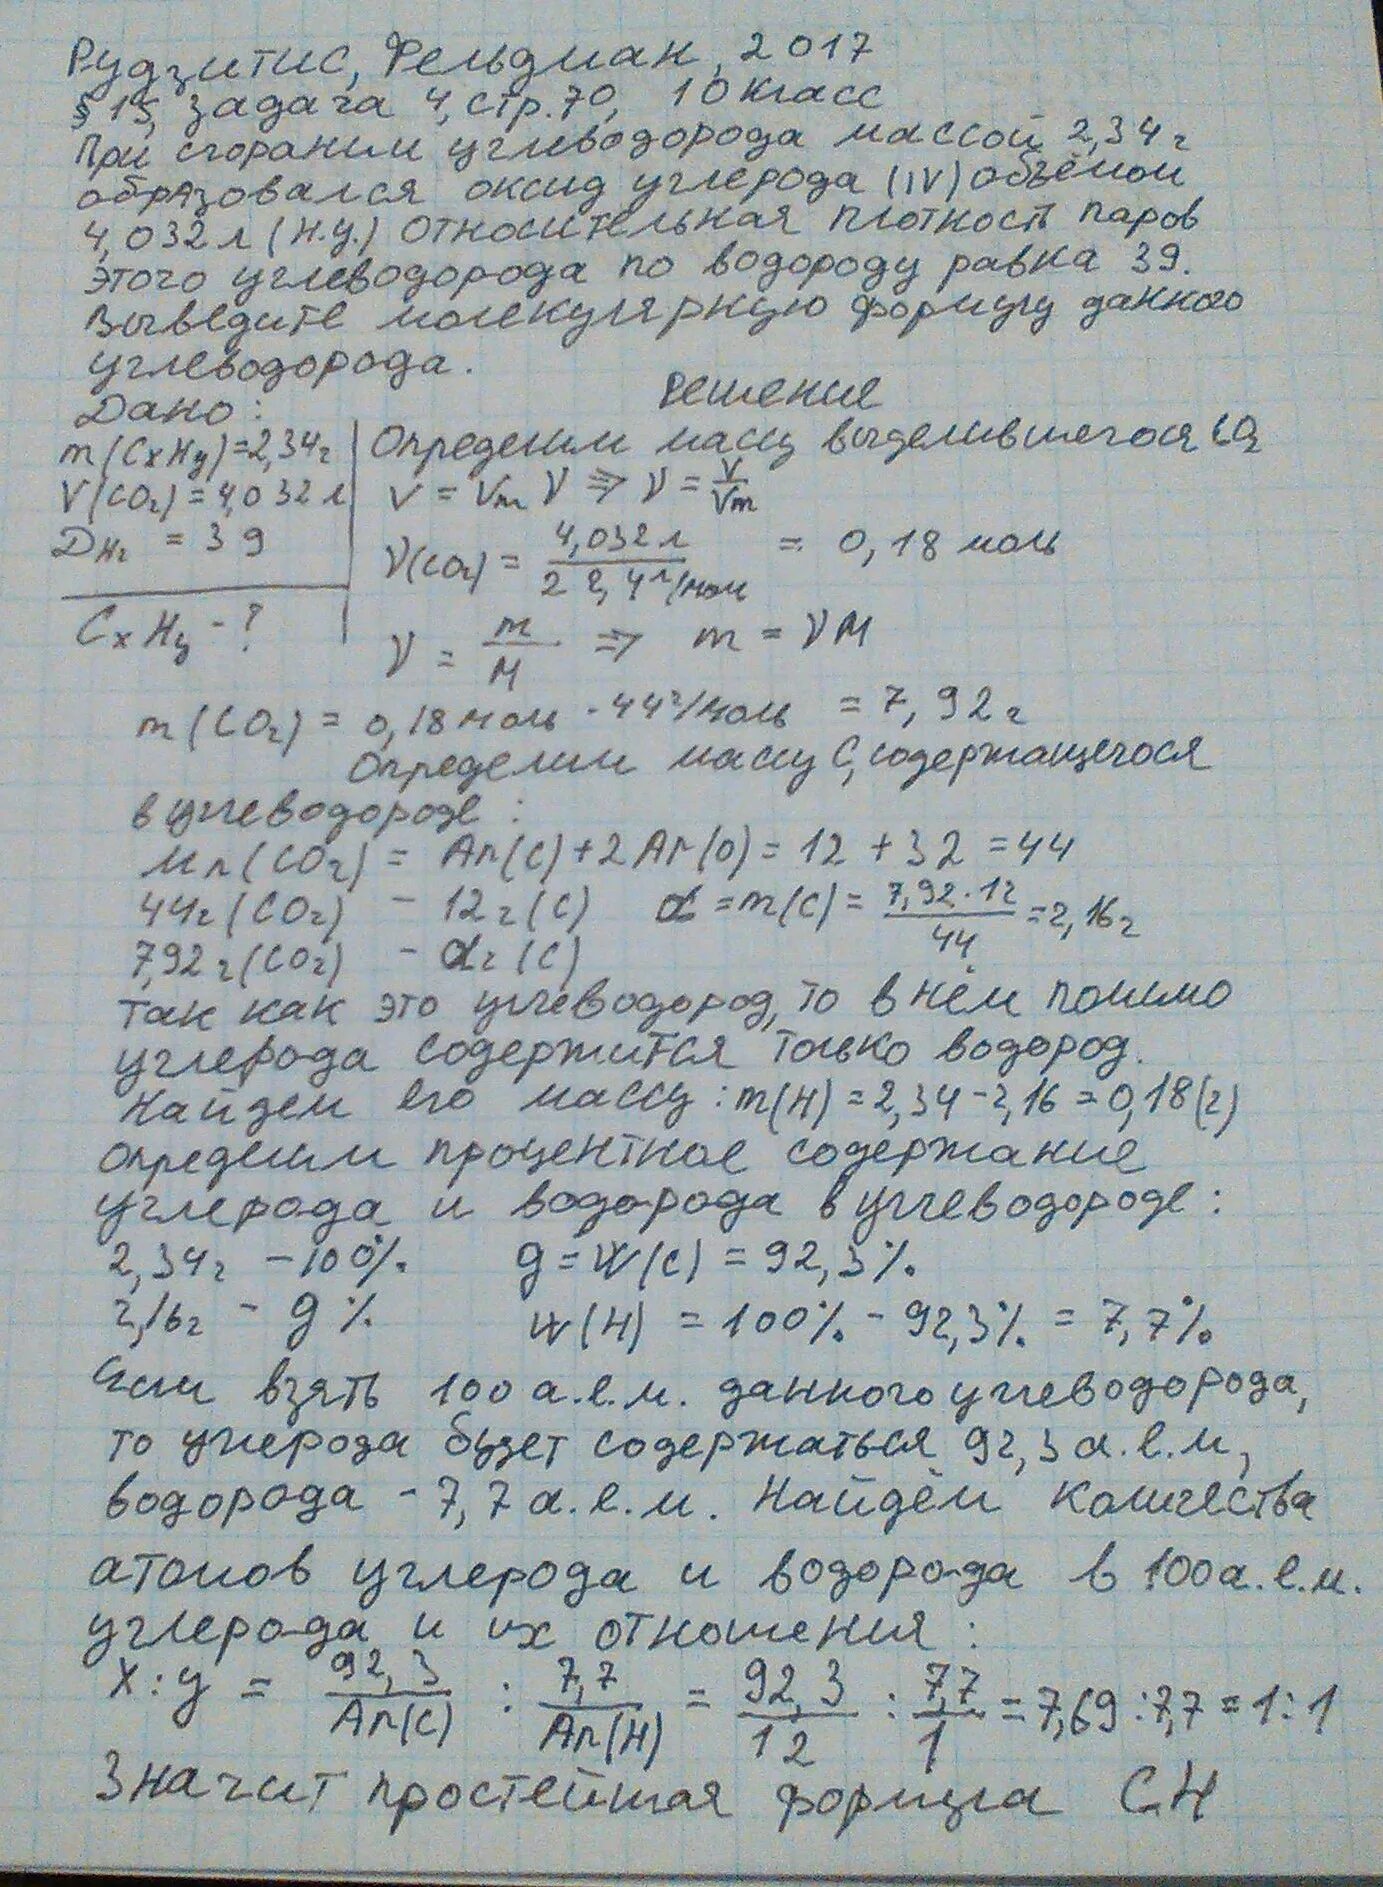 Рудзитис, Фельдман, 2017
§ 15, задача 4, стр. 70, 10 класс
При сгорании углеводорода массой 2,34 г
образовался оксид углерода (IV) объёмом
4,032 л (н.у.) Относительная плотность паров
этого углеводорода по водороду равна 39.
Выведите молекулярную формулу данного
углеводорода.
Решение
Дано:
m(CxHy) = 2,34 г
V(CO2) = 4,032 л
DH2 = 39
CxHy - ?
Определим массу выделившегося CO2
V = Vm ν ⇒ ν = V/Vm
ν(CO2) = 4,032 л / 22,4 л/моль = 0,18 моль
ν = m/M ⇒ m = νM
m(CO2) = 0,18 моль · 44 г/моль = 7,92 г
Определим массу C, содержащегося
в углеводороде:
Mr(CO2) = Ar(C) + 2Ar(O) = 12 + 32 = 44
44 г (CO2) - 12 г (C) x = m(C) = 7,92 · 12 / 44 = 2,16 г
7,92 г (CO2) - x г (C)
Так как это углеводород, то в нём помимо
углерода содержится только водород.
Найдем его массу: m(H) = 2,34 - 2,16 = 0,18 (г)
Определим процентное содержание
углерода и водорода в углеводороде:
2,34 г - 100% y = w(C) = 92,3%
2,16 г - y % w(H) = 100% - 92,3% = 7,7%
Если взять 100 а.е.м. данного углеводорода,
то углерода будет содержаться 92,3 а.е.м,
водорода - 7,7 а.е.м. Найдём количества
атомов углерода и водорода в 100 а.е.м.
углерода и их отношения:
x : y = 92,3/Ar(C) : 7,7/Ar(H) = 92,3/12 : 7,7/1 = 7,69 : 7,7 = 1 : 1
Значит простейшая формула CH